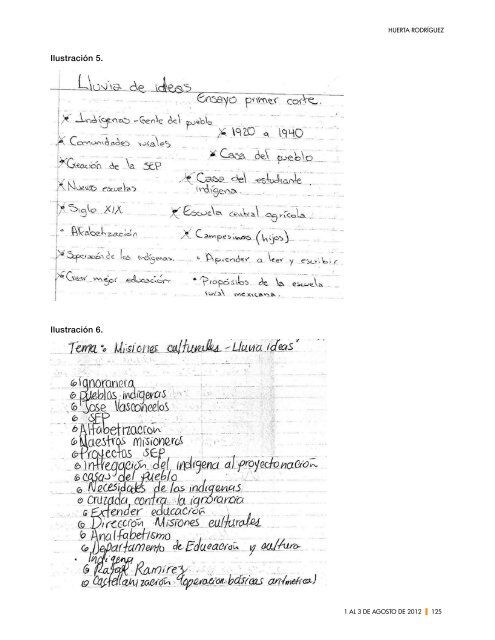 HUERTA RODRÍGUEZ
Ilustración 5.
Lluvia de ideas
Ensayo primer corte.
Indígenas - Gente del pueblo
1920 a 1940
Comunidades rurales
Casa del pueblo
Creación de la SEP
Casa del estudiante
indígena.
Nuevas escuelas
Siglo XIX
Escuela central agrícola
Alfabetización
Campesinos (hijos)
Superación de los indígenas.
Aprender a leer y escribir
Crear mejor educación
Propósitos de la escuela
rural mexicana.
Ilustración 6.
Tema: Misiones culturales - Lluvia ideas
Ignorancia
pueblos indígenas
Jose Vasconcelos
SEP
Alfabetización
Maestros misioneros
Proyectos SEP
Integración del indígena al proyecto nación
casas del Pueblo
Necesidades de los indígenas
cruzada contra la ignorancia
Extender educación
Dirección Misiones culturales
Analfabetismo
Departamento de Educación y cultura
Indígena
Rafael Ramírez
Castellanización (operación básicas aritmética)
1 AL 3 DE AGOSTO DE 2012 | 125